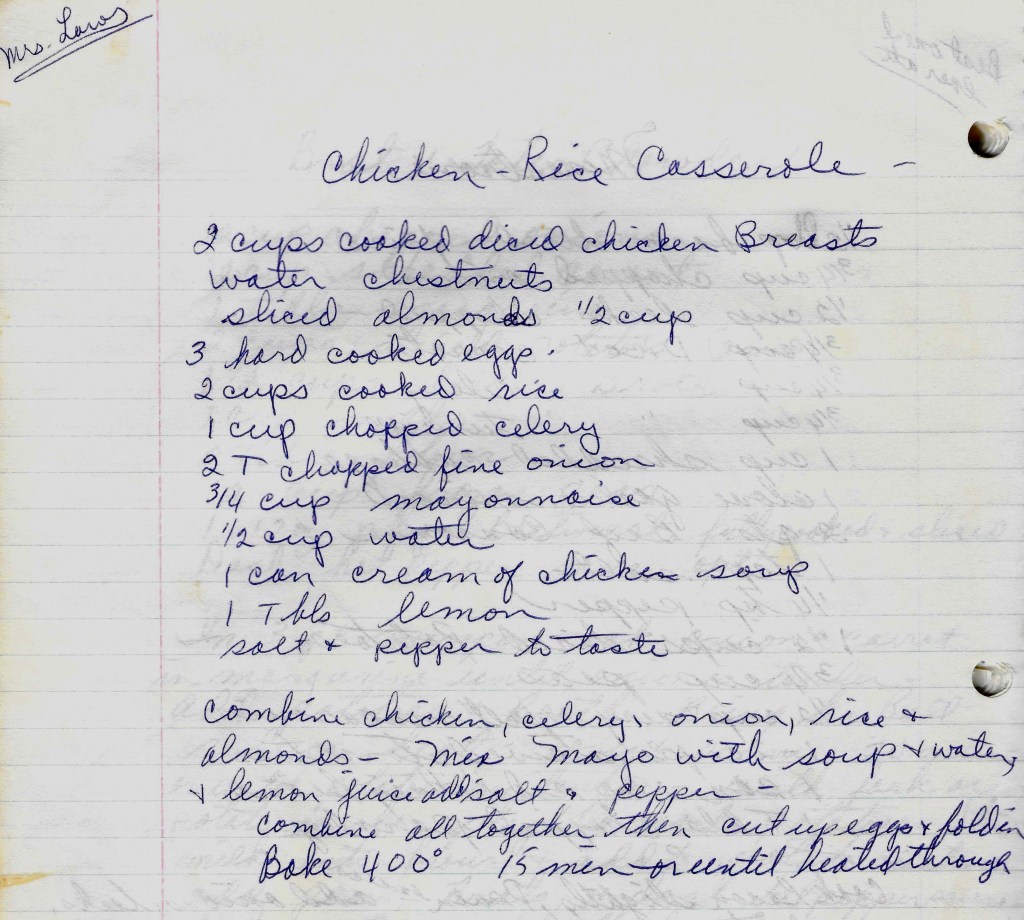 Mrs. Laws
Chicken - Rice Casserole -
2 cups cooked diced chicken Breasts
water chestnuts
sliced almonds 1/2 cup
3 hard cooked eggs.
2 cups cooked rice
1 cup chopped celery
2 T chopped fine onion
3/4 cup mayonnaise
1/2 cup water
1 can cream of chicken soup
1 Tbls lemon
salt & pepper to taste
combine chicken, celery, onion, rice &
almonds - mix Mayo with soup & water,
& lemon juice add salt & pepper -
combine all together then cut up eggs & fold in
Bake 400° 15 min - or until heated through